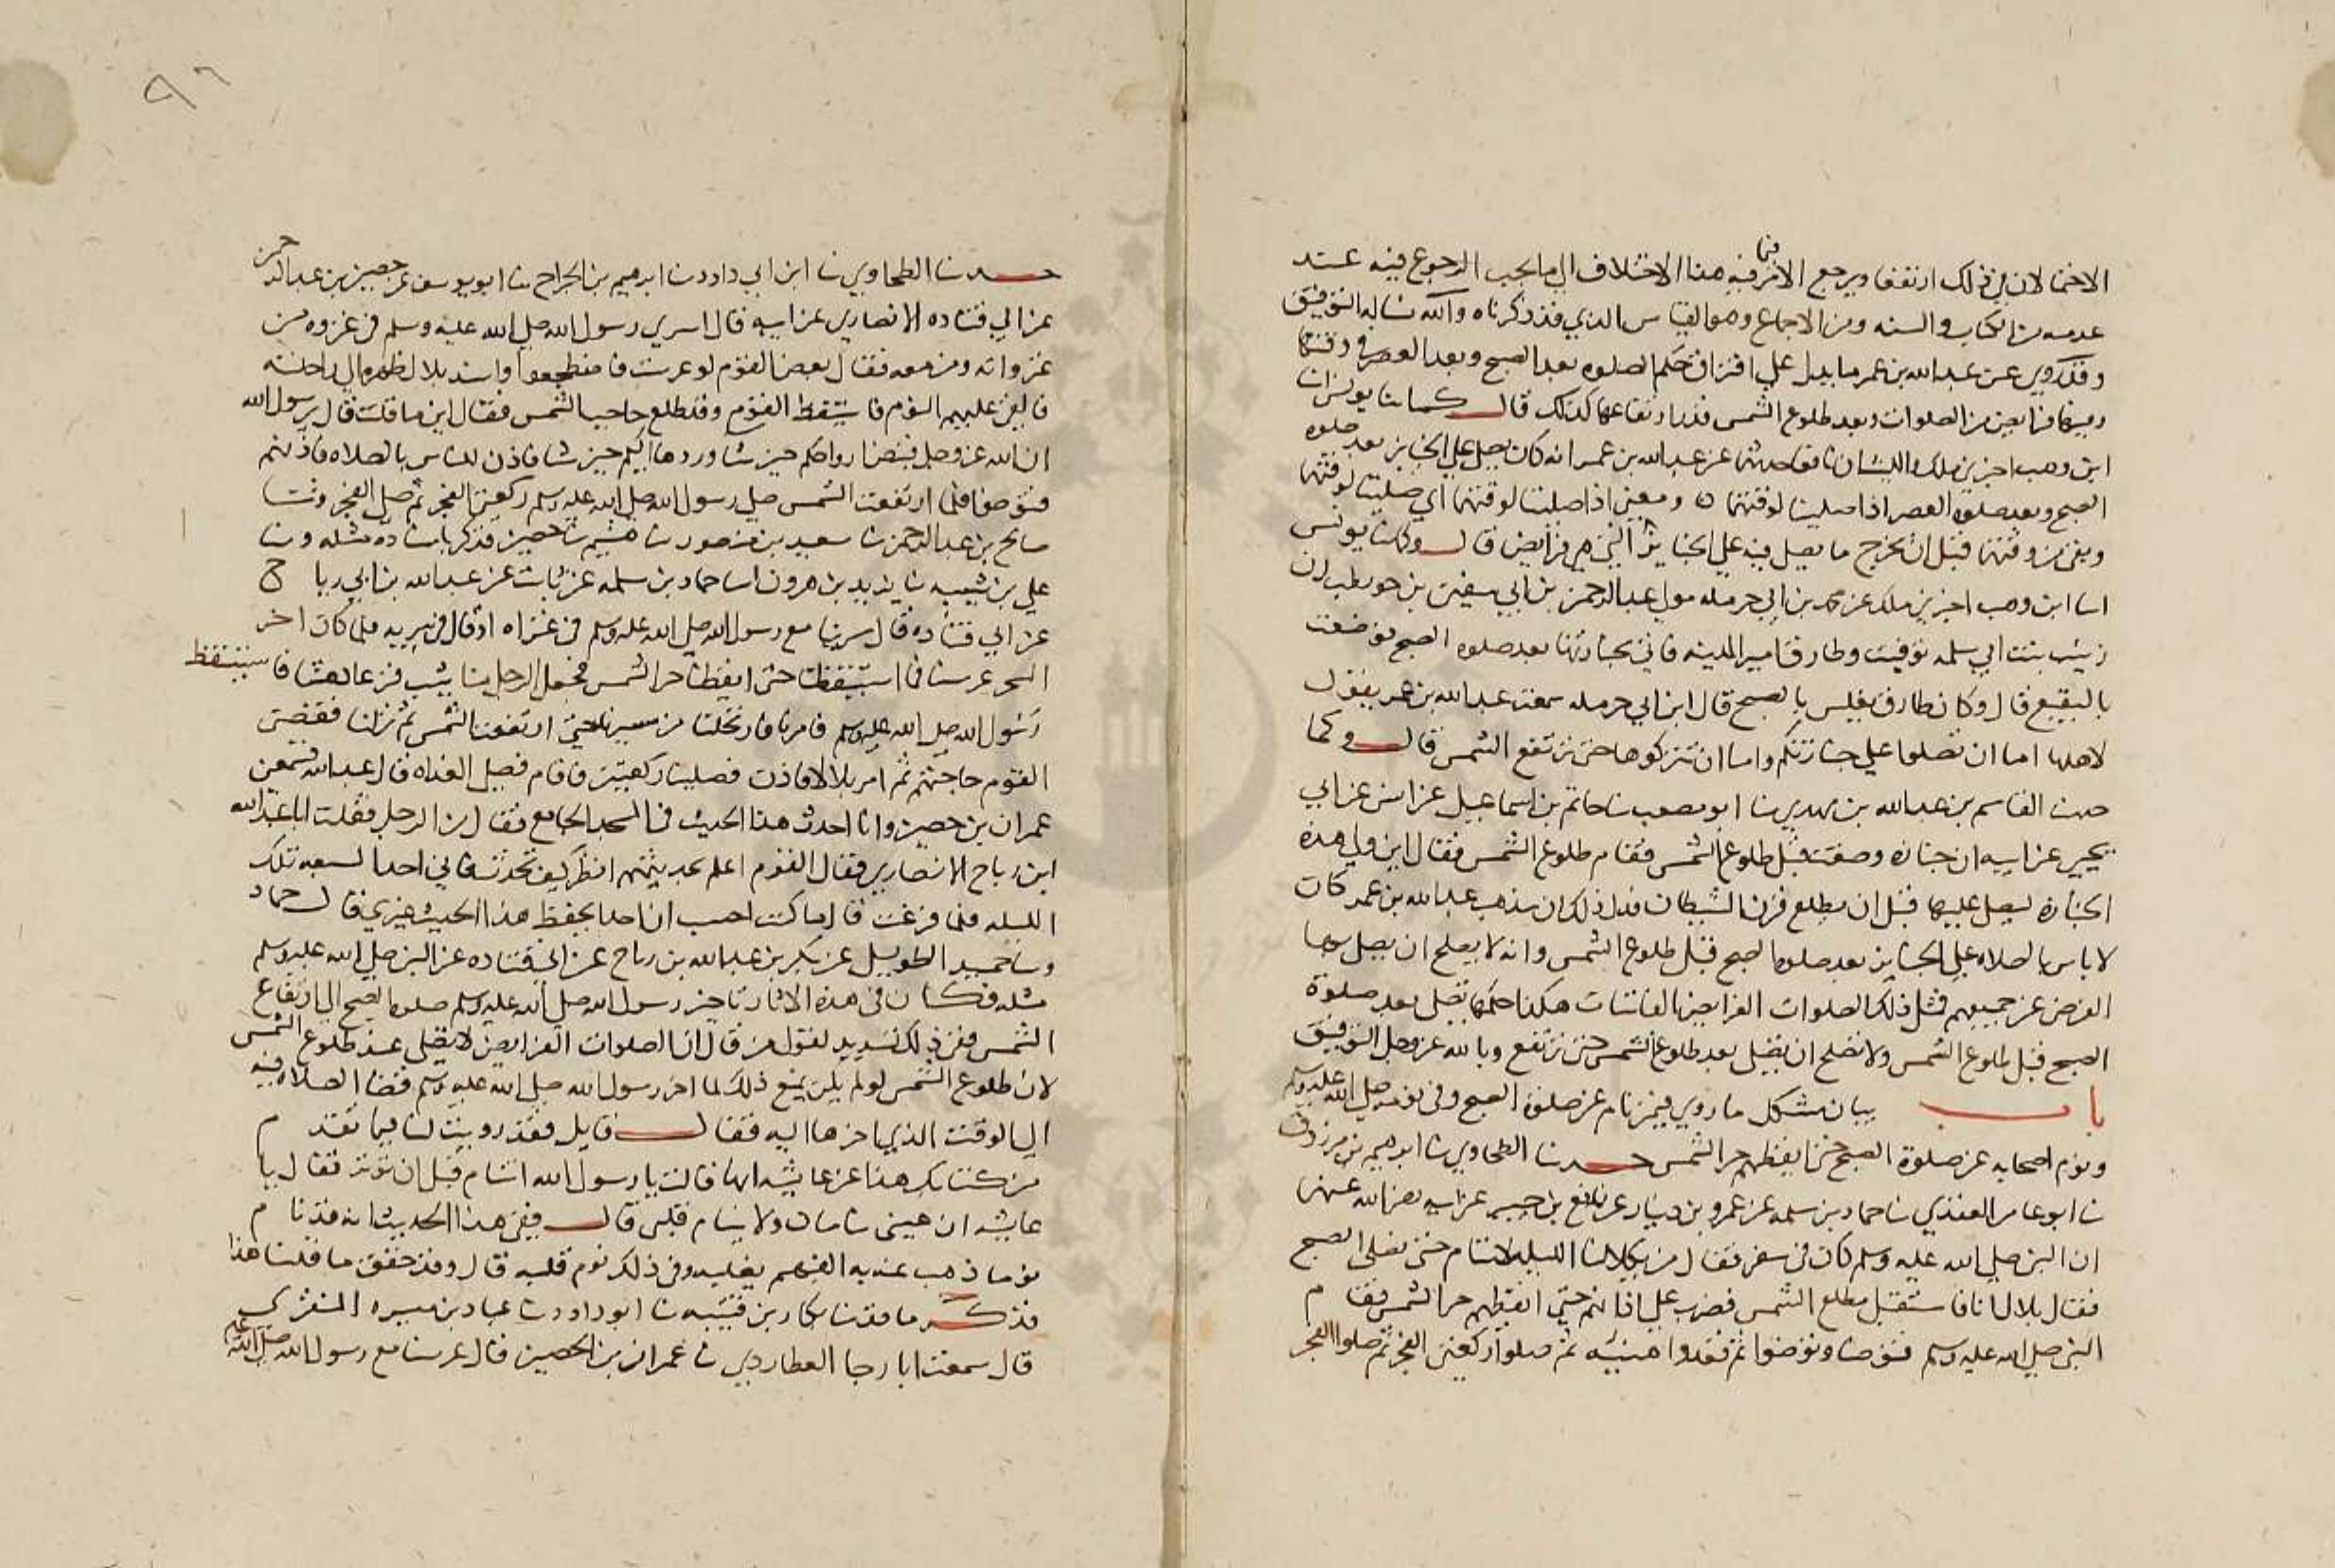 الاختمالان في ذلك ارتفقا ويرجع الامر فيه هذا الاختلاف الي ما يجب الرجوع فيه عند
عدمه من الكتاب والسنه ومن الاجماع وهو القياس الذي قد ذكرناه والله نساله التوفيق
وقد روي عن عبد الله بن عمر ما يدل علي افتراق حكم الصلوه بعد الصبح وبعد العصر في وقتها
من الصلوات وبعد طلوع الشمس قدر ارتفاعها كذلك قال كما نا يونس انا
ابن وهب اخبرني ملك ان نافعا حدثه عن عبد الله بن عمر انه كان يصلي علي الجنايز بعد صلوه
الصبح وبعد صلوه العصر اذا صليتا لوقتهما ومعني اذا صليتا لوقتهما اي صليتا لوقتهما
وبقي من وقتهما قبل ان يخرج ما يصلي فيه علي الجنايز التي هي فرايض قال وكما نا يونس
انا ابن وهب اخبرني ملك عن محمد بن ابي حرمله مولي عبد الرحمن بن ابي سفين بن حويطب ان
زينب بنت ابي سلمه توفيت وطارق امير المدينه فاتي بجنازتها بعد صلوه الصبح فوضعت
بالبقيع قال وكان طارق يغلس بالصبح قال ابن ابي حرمله سمعت عبد الله بن عمر يقول
لاهلها اما ان تصلوا علي جنازتكم واما ان تتركوها حتي ترتفع الشمس قال وكما
حدثنا القاسم بن عبد الله بن مهدي نا ابو مصعب نا حاتم بن اسماعيل عن انيس عن ابي
يحيي عن ابيه ان جنازه وضعت قبل طلوع الشمس فقام طلوع الشمس فقال اين ولي هذه
الجنازه ليصل عليها قبل ان يطلع قرن الشيطان فدل ذلك ان مذهب عبد الله بن عمر كان
لا باس بالصلاه علي الجنايز بعد صلوه الصبح قبل طلوع الشمس وانه لا يصلح ان يصلي بها
الفرض عن جميعهم فمثل ذلك الصلوات الفرايض الفائتات هكذا حكمها تصلي بعد صلوة
الصبح قبل طلوع الشمس ولا تصلح ان تصلي بعد طلوع الشمس حتي ترتفع وبالله عز وجل التوفيق
باب بيان مشكل ما روي فيمن نام عن صلوة الصبح وفي نومه صلي الله عليه وسلم
ونوم اصحابه عن صلوة الصبح حتي ايقظهم حر الشمس حدثنا الطحاوي نا ابرهيم بن مرزوق
نا ابو عامر العقدي نا حماد بن سلمه عن عمرو بن دينار عن نافع بن جبير عن ابيه رضي الله عنهما
ان النبي صلي الله عليه وسلم كان في سفر فقال من يكلانا الليله لا ننام حتي نصلي الصبح
فقال بلال انا فاستقبل مطلع الشمس فضرب علي اذانهم حتي ايقظهم حر الشمس فقام
النبي صلي الله عليه وسلم فتوضا وتوضوا ثم قعدوا هنيئه ثم صلوا ركعتي الفجر ثم صلوا الفجر
٩٦
حدثنا الطحاوي نا ابن ابي داود نا ابرهيم بن الجراح نا ابو يوسف عن حصين بن عبد الرحمن
عن ابي قتاده الانصاري عن ابيه قال اسري رسول الله صلي الله عليه وسلم في غزوه من
غزواته ونحن معه فقال بعض القوم لو عرست فا فاضطجعوا واسند بلال ظهره الي راحلته
فالقي عليهم النوم فاستيقظ القوم وقد طلع حاجب الشمس فقال اين ما قلت قال يرسول الله
ان الله عز وجل قبض ارواحكم حين شا وردها اليكم حين شا فاذن للناس بالصلاه فاذنهم
فتوضوا فلما ارتفعت الشمس صلي رسول الله صلي الله عليه وسلم ركعتي الفجر ثم صلي الفجر وثنا
صالح بن عبد الرحمن نا سعيد بن منصور نا هشيم نا حصين فذكر باسناده مثله ونا
علي بن شيبه نا يزيد بن هرون انا حماد بن سلمه عن ثابت عن عبد الله بن ابي رباح
عن ابي قتاده قال سرينا مع رسول الله صلي الله عليه وسلم في غزاه او قال في سريه فلما كان اخر
السحر عرسنا فما استيقظنا حتي ايقظنا حر الشمس فجعل الرجل منا يثب فزعا دهشا فاستيقظ
رسول الله صلي الله عليه وسلم فامرنا فارتحلنا من مسيرنا حتي ارتفعت الشمس ثم نزلنا فقضي
القوم حاجتهم ثم امر بلالا فاذن فصلينا ركعتين فاقام فصلي الغداه قال عبد الله فسمعني
عمران بن حصين وانا احدث هذا الحديث في المسجد الجامع فقال من الرجل فقلت انا عبد الله
ابن رباح الانصاري فقال القوم اعلم بحديثهم انظر كيف تحدث فاني احد السبعه تلك
الليله فلما فرغت قال ما كنت احسب ان احدا يحفظ هذا الحديث غيري قال حماد
ونا حميد الطويل عن بكر بن عبد الله بن رباح عن ابي قتاده عن النبي صلي الله عليه وسلم
مثله فكان في هذه الاثار تاخير رسول الله صلي الله عليه وسلم صلوه الصبح الي ارتفاع
الشمس ففي ذلك تسديد لقول من قال ان الصلوات الفرايض لا تصلي عند طلوع الشمس
لان طلوع الشمس لو لم يكن يمنع ذلك لما اخر رسول الله صلي الله عليه وسلم قضا الصلاه فيه
الي الوقت الذي اخرها اليه فقال قايل فقد رويت لنا فيما تقدم
من كتابك هذا عن عايشه انها قالت يا رسول الله اتنام قبل ان توتر فقال يا
عايشه ان عيني تنامان ولا ينام قلبي قال ففي هذا الحديث انه قد نام
نوما ذهب عنه به الفهم بقلبه وفي ذلك نوم قلبه قال وقد حقق ما قلنا هذا
فذكر ما قد نا بكار بن قتيبه نا ابو داود نا عباد بن ميسره المنقري
قال سمعت ابا رجا العطاردي نا عمران بن الحصين قال عرسنا مع رسول الله صلي الله عليه